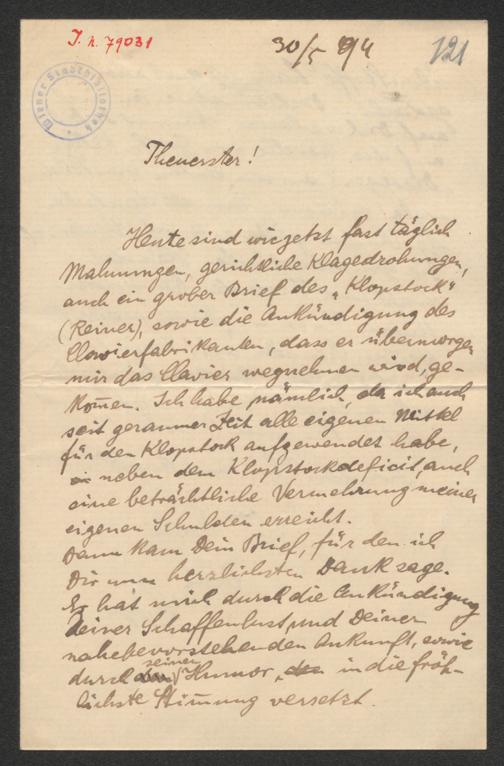 J. N. 79031
30/5 94
121
Wiener Stadtbibliothek
Theuerster!
Heute sind wie jetzt fast täglich
Mahnungen, gerichtliche Klagedrohungen,
auch ein grober Brief des "Klopstock"
(Reiner), sowie die Ankündigung des
Clavierfabrikanten, dass er übermorgen
mir das Clavier wegnehmen wird, ge-
kom̄en. Ich habe nämlich, da ich auch
seit geraumer Zeit alle eigenen Mittel
für den Klopstock aufgewendet habe,
neben dem Klopstockdeficit, auch
eine beträchtliche Vermehrung meiner
eigenen Schulden erreicht.
Dann kam Dein Brief, für den ich
Dir nun herzlichsten Dank sage.
Er hat mich durch die Ankündigung
Deiner Schaffenslust, und Deiner
nahebevorstehenden Ankunft, sowie
durch seinen Humor, in die fröh-
lichste Stim̄ung versetzt.